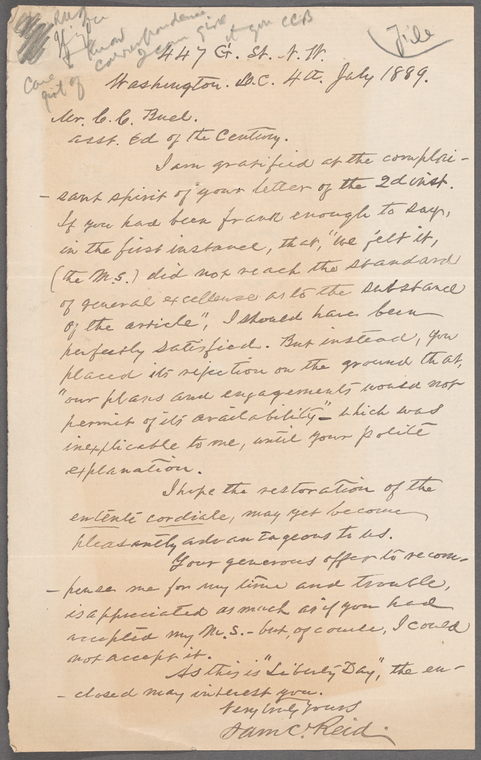 know
correspondence
I can give
it you CCB
File
447 G. St. N.W.
Washington. D.C. 4th July 1889.
Mr. C. C. Buel.
asst. Ed of the Century.
I am gratified at the complai-
-sant spirit of your letter of the 2d inst.
If you had been frank enough to say,
in the first instance, that, "we felt it,
(the M.S.) did not reach the standard
of general excellence as to the substance
of the article", I should have been
perfectly satisfied. But instead, you
placed its rejection on the ground that,
"our plans and engagements would not
permit of its availability" - which was
inexplicable to me, until your polite
explanation.
I hope the restoration of the
entente cordiale, may yet become
pleasantly advantageous to us.
Your generous offer to recom-
-pense me for my time and trouble,
is appreciated as much as if you had
accepted my M.S. - but, of course, I could
not accept it.
As this is "Liberty Day", the en-
-closed may interest you.
Very truly yours
Sam C. Reid.